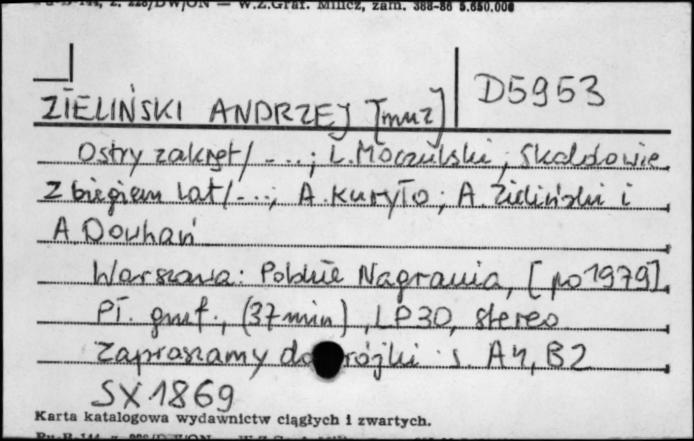 Pu-B-144, z. 228/DW/ON — W.Z.Graf. Milicz, zam. 388-86 5.650.000
D5953
ZIELIŃSKI ANDRZEJ [muz]
Ostry zakręt / ...; L. Moczulski; Skaldowie
Z biegiem lat / ...; A. Kuryło; A. Zieliński i
A. Douhań
Warszawa: Polskie Nagrania, [po 1979]
Pł. gmf., (37 min), LP30, stereo
Zapraszamy do rójki s. A4, B2
SX 1869
Karta katalogowa wydawnictw ciągłych i zwartych.